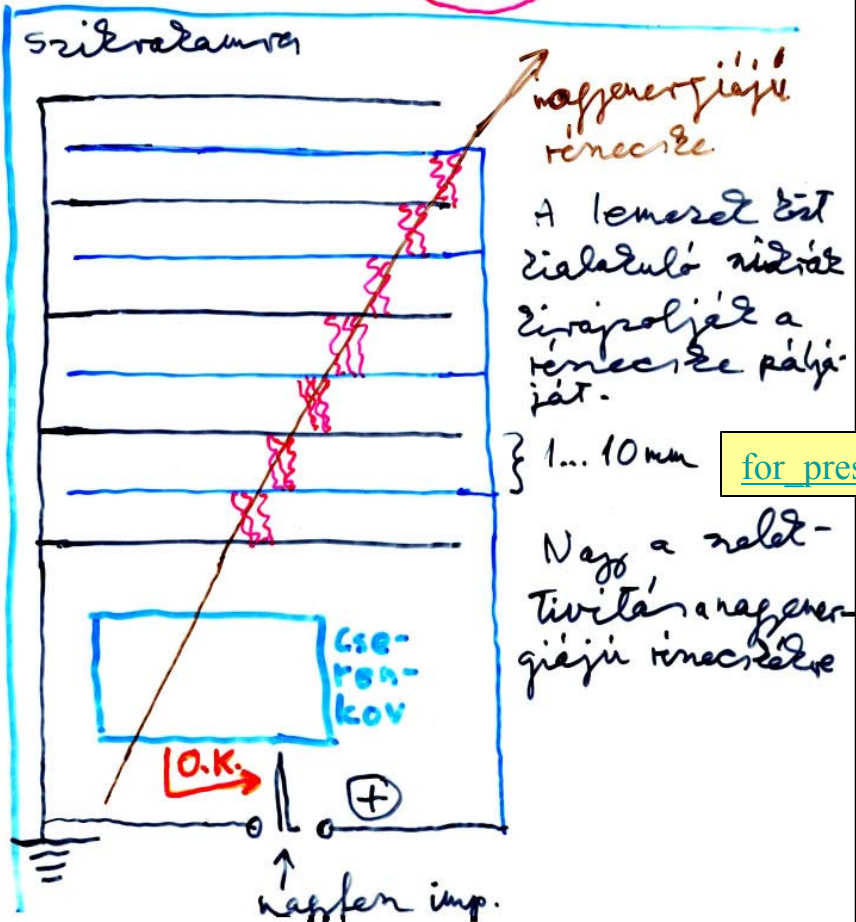 szikrakamra
nagyenergiájú
részecske
A lemezek közt
kialakuló szikrák
kirajzolják a
részecske pályá-
ját.
1... 10 mm
for_pres
Nagy a szelek-
tivitás a nagyener-
giájú részecskékre
Cse-
ren-
kov
O.K.
+
nagyfesz imp.